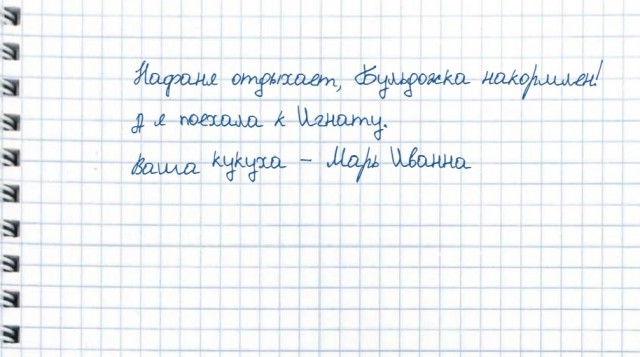 Нафаня отдыхает, Бульдожка накормлен!
А я поехала к Игнату.
Ваша кукуха – Марь Иванна